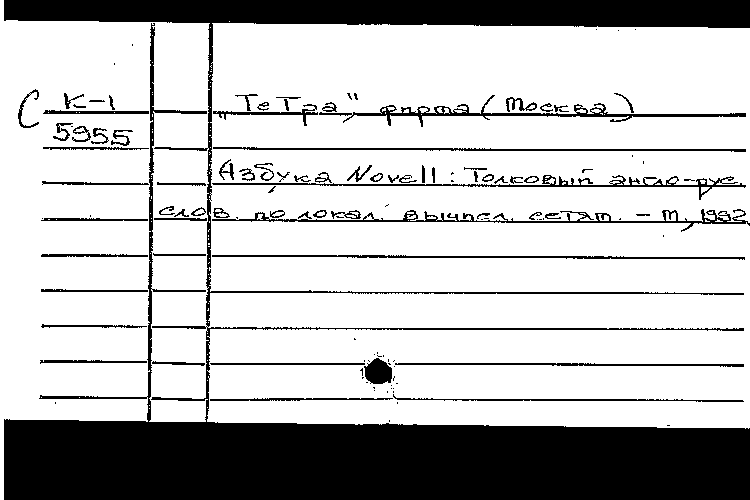 С К-1 „ТеТра", фирма (Москва)
5955
Азбука Novell: Толковый англо-рус.
слов. по локал. вычисл. сетям. - М, 1992